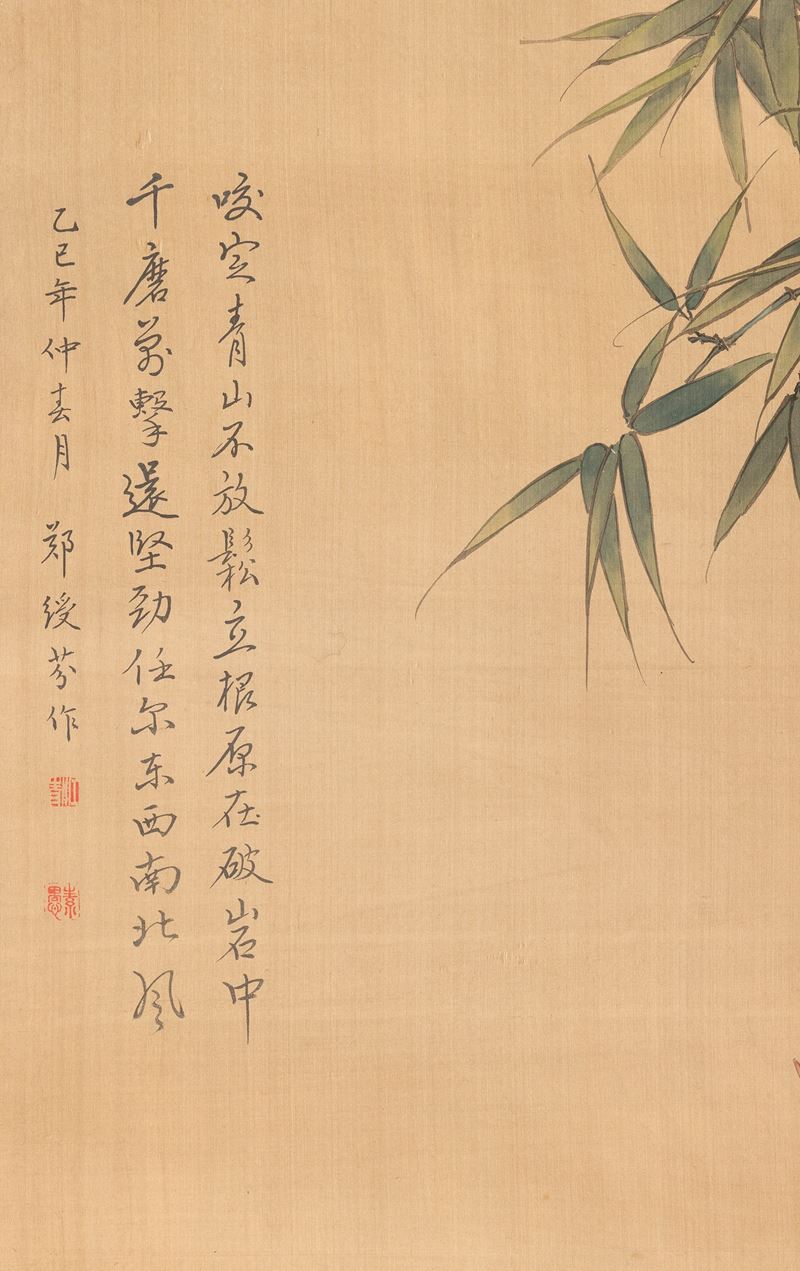 咬定青山不放鬆立根原在破岩中
千磨萬擊還堅劲任尔东西南北风
乙巳年仲春月 郑绶芬作
素愚